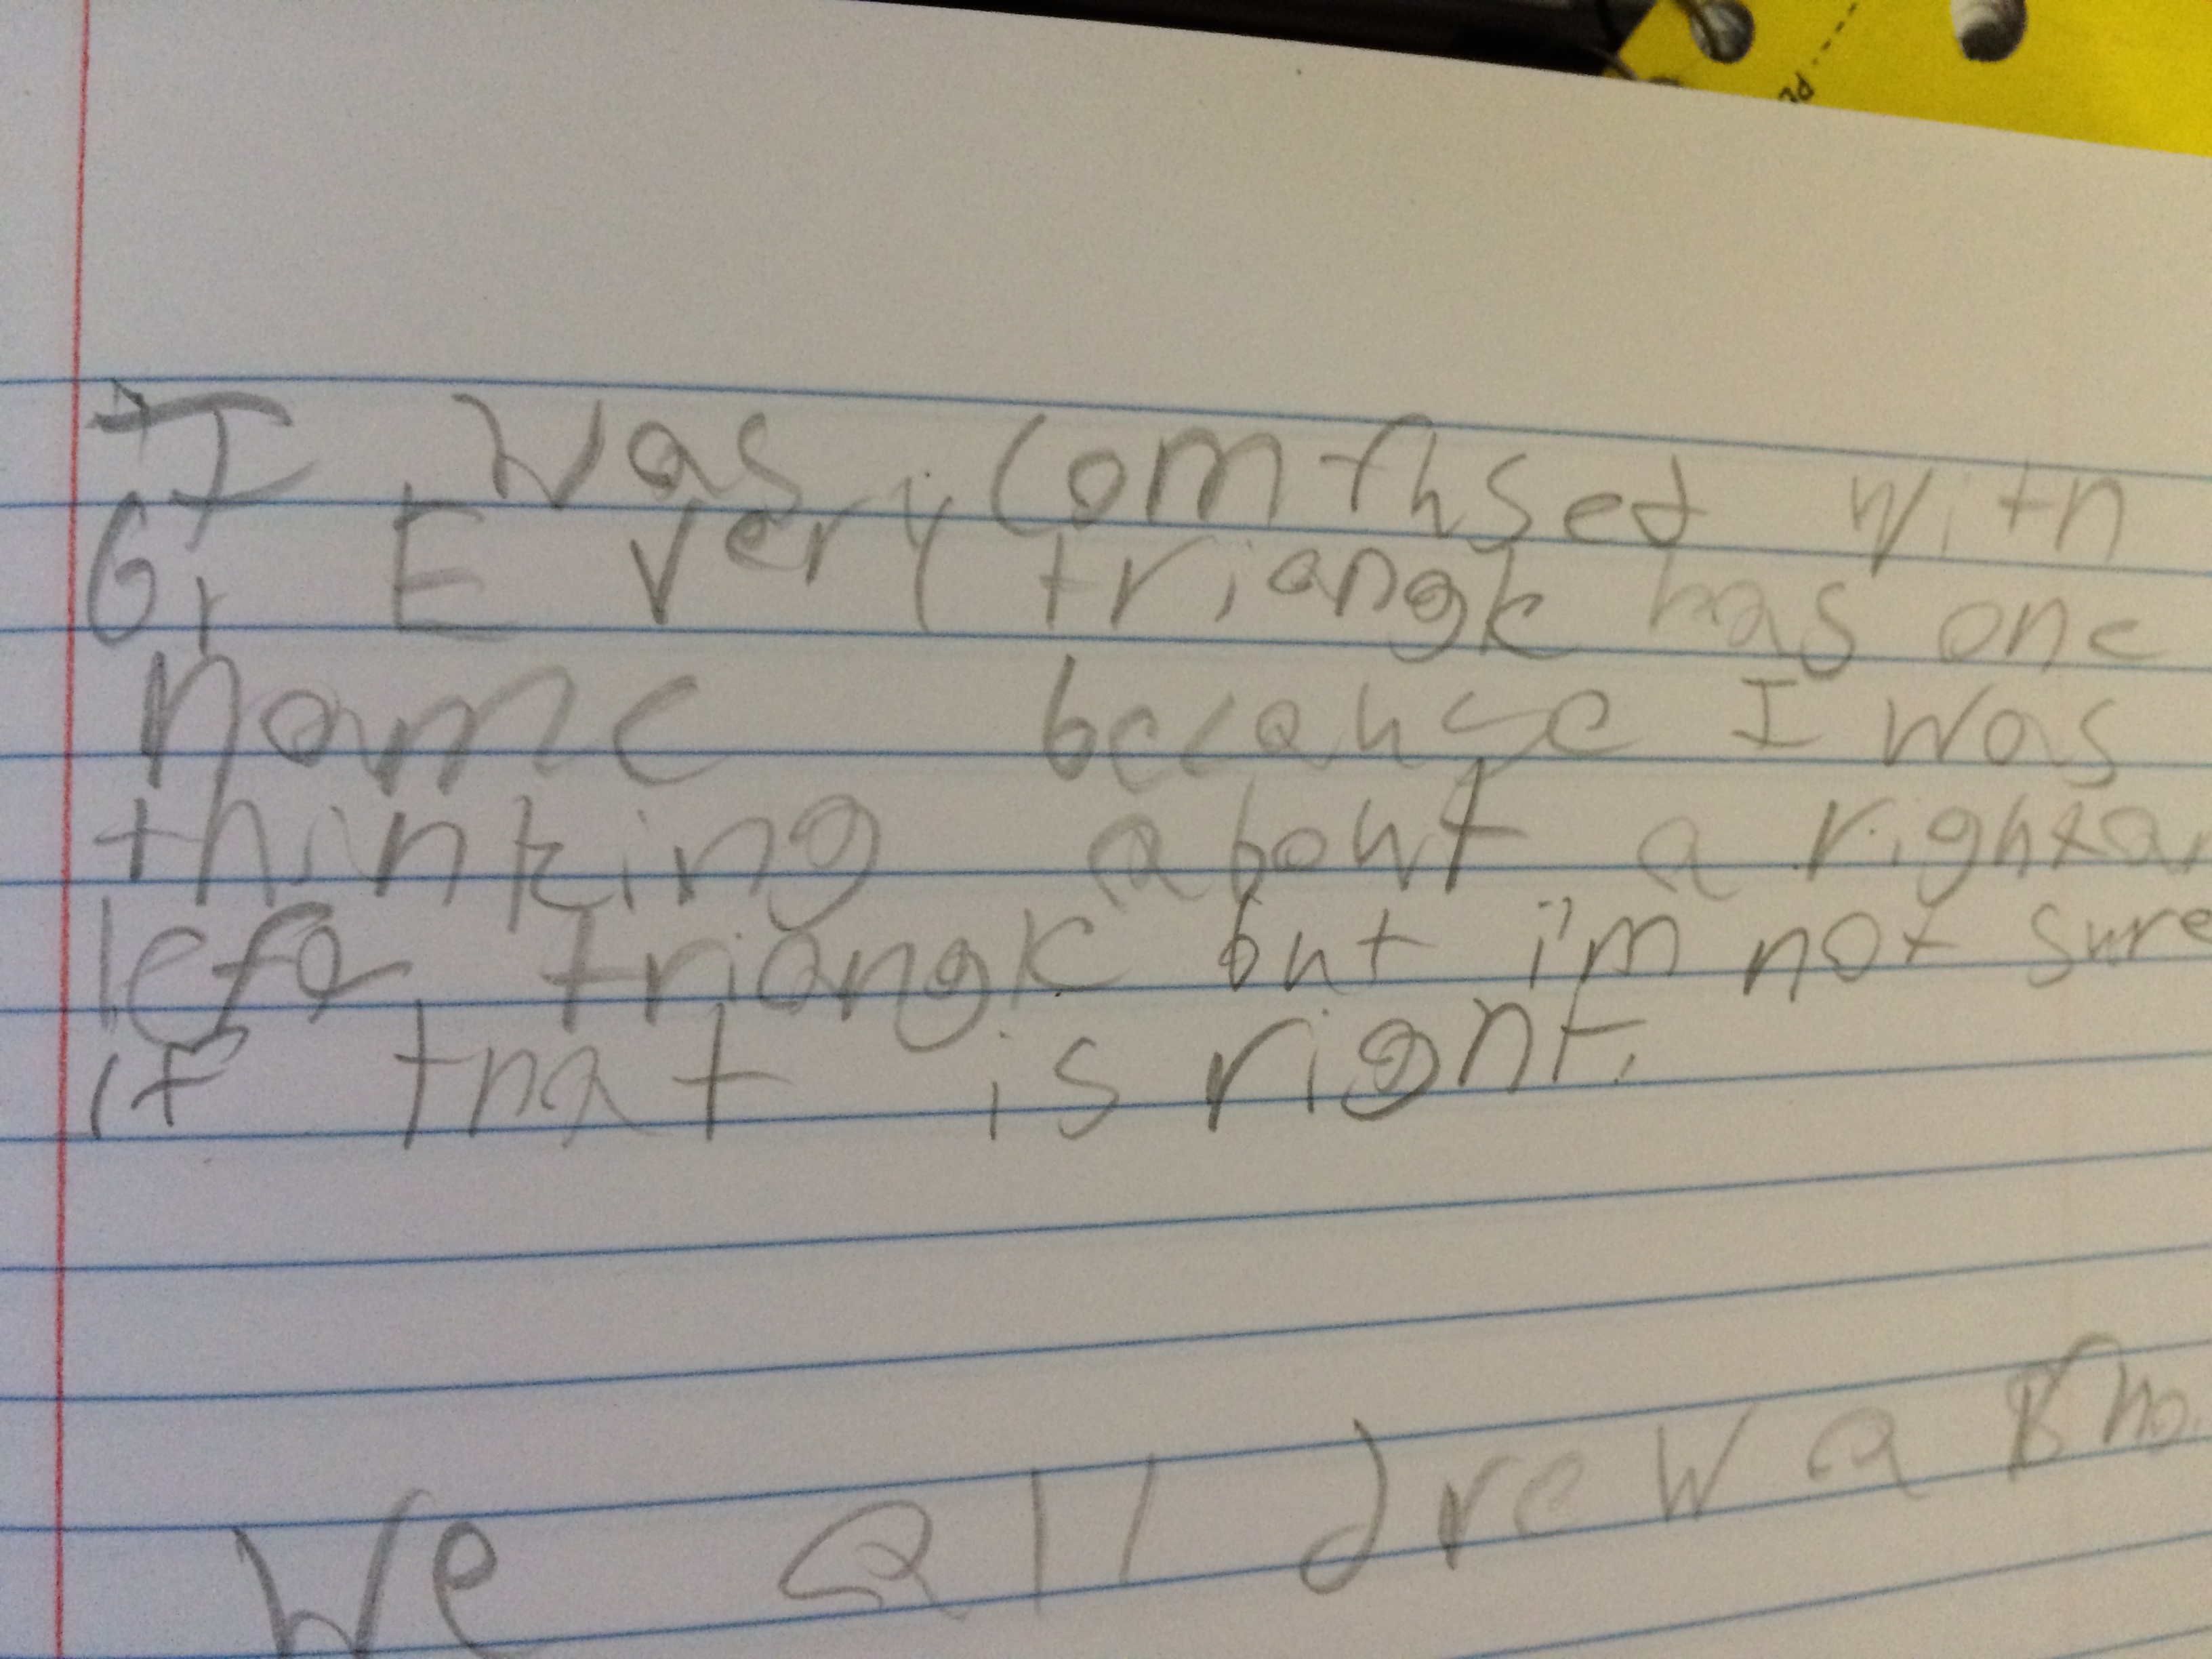 I was comfused with
6, Every triangle has one
name because I was
thinking about a right
left triangle but i'm not sure
if that is right.
We all drew a